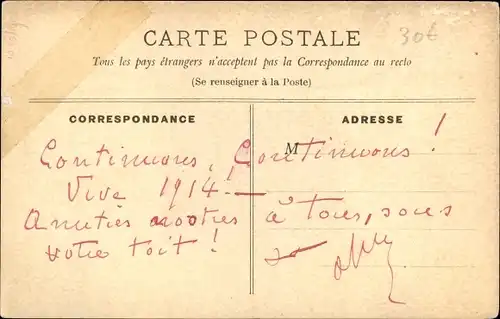 CARTE POSTALE
30€
Tous les pays étrangers n'acceptent pas la Correspondance au recto
(Se renseigner à la Poste)
CORRESPONDANCE
ADRESSE
M
Continuons, Continuons !
Vive 1914! —
Amitiés nostres à tous, sous
votre toit !